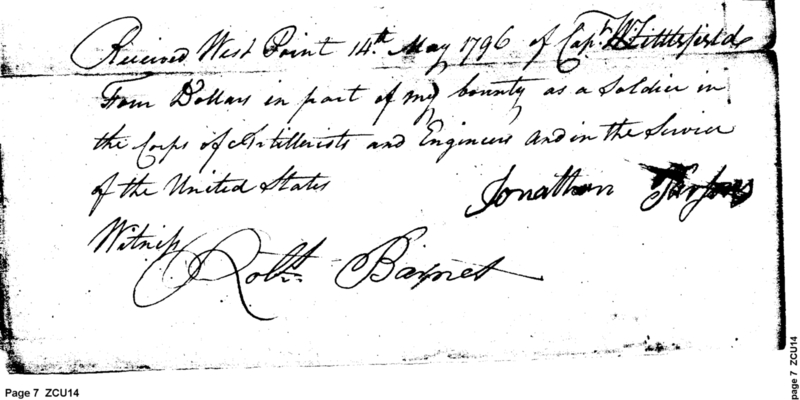 Received West Point 14th May 1796 of Capt. W Littlefield
Four Dollars in part of my bounty as a Soldier in
the Corps of Artillerists and Engineers and in the Service
of the United States
Jonathan
Witness
Robt. Baynes
Page 7 ZCU14
page 7 ZCU14